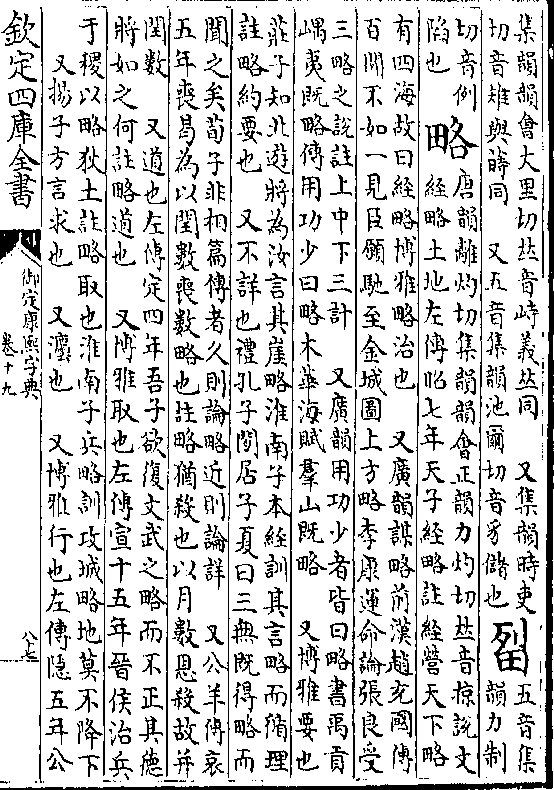 集韻韻會丈里切𠀤音峙義𠀤同　又集韻時吏
切音雉與蒔同　又五音集韻池爾切音豸儲也　𤱄五音集韻力制
切音例
陷也　略唐韻離灼切集韻韻會正韻力灼切𠀤音掠說文
經略土地左傳昭七年天子經略註經營天下略
有四海故曰經略博雅略治也　又廣韻謀略前漢趙充國傳
百聞不如一見臣願馳至金城圖上方略李康運命論張良受
三略之說註上中下三計　又廣韻用功少者皆曰略書禹貢
嵎夷既略傳用功少曰略木華海賦羣山既略　又博雅要也
莊子知北遊將為汝言其崖略淮南子本經訓其言略而循理
註略約要也　又不詳也禮孔子閒居子夏曰三無既得略而
聞之矣荀子非相篇傳者久則論略近則論詳　又公羊傳哀
五年喪曷為以閏數喪數略也註略猶殺也以月數恩殺故并
閏數　又道也左傳定四年吾子欲復文武之略而不正其德
將如之何註略道也　又博雅取也左傳宣十五年晉侯治兵
于稷以略狄土註略取也淮南子兵略訓攻城略地莫不降下
又揚子方言求也　又灋也　又博雅行也左傳隱五年公
欽定四庫全書
御定康熙字典
卷十九
八七